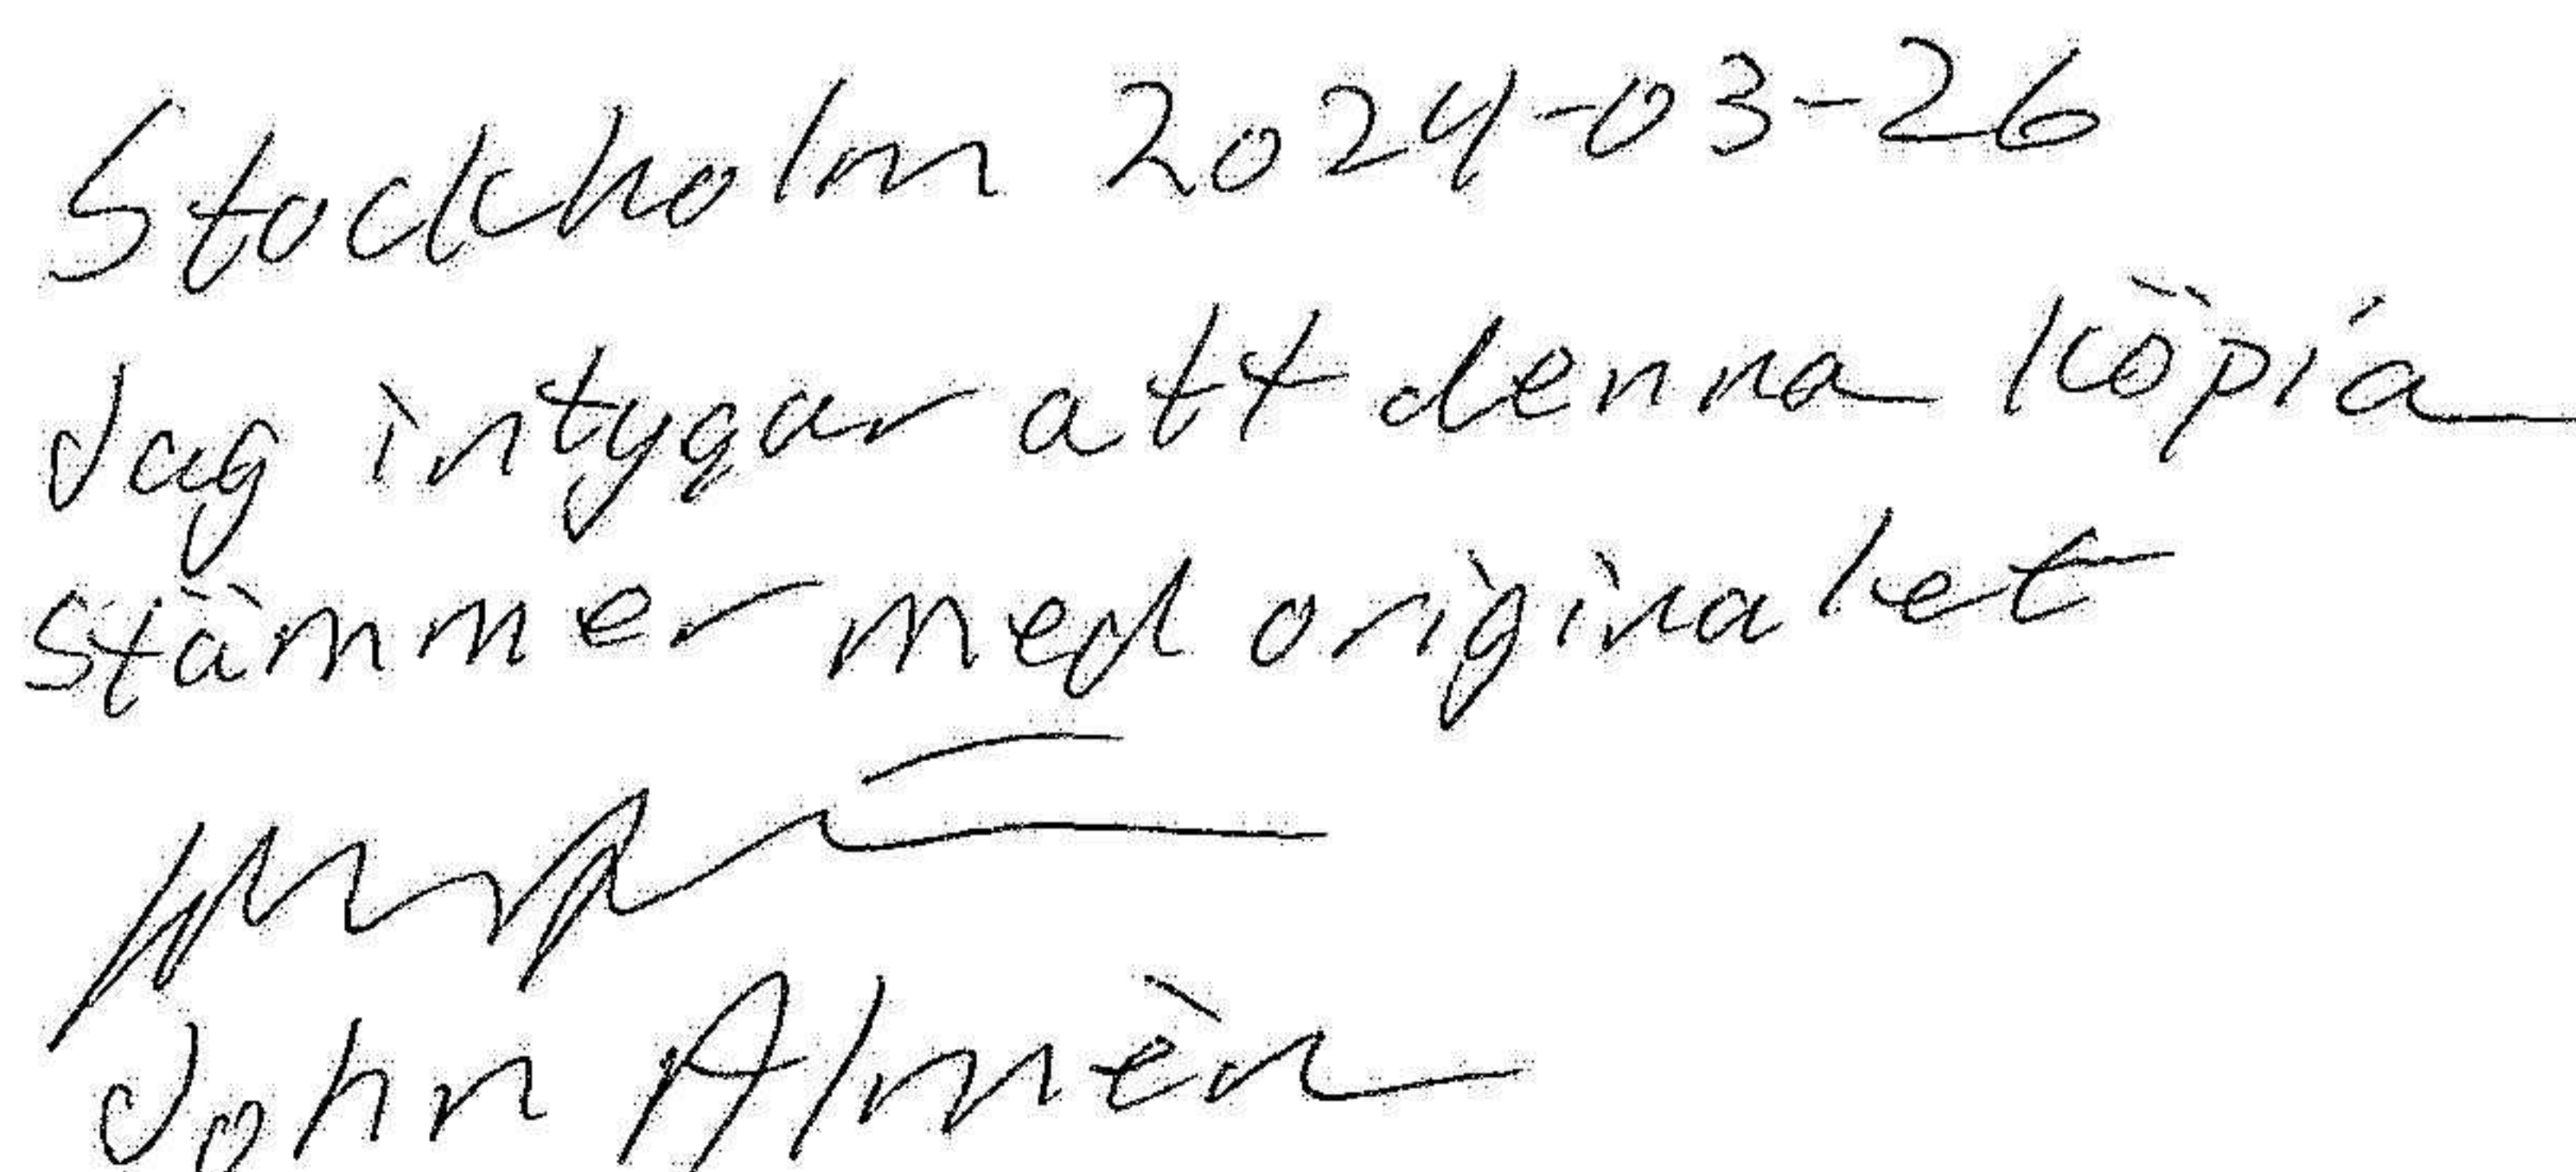 Stockholm 2024-03-26
Jag intygar att denna köpia
stämmer med originalet
John Almèn